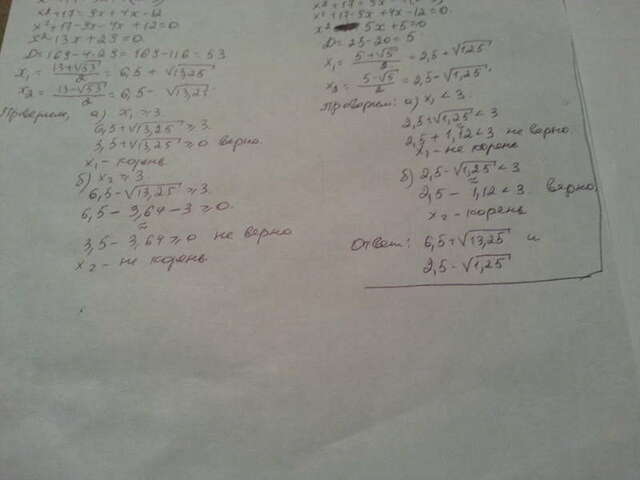 x²+17=9x+4x-12
x²+17-9x-4x+12=0
x²-13x+29=0
D=169-4·29=169-116=53
x₁=(13+√53)/2=6,5+√13,25
x₂=(13-√53)/2=6,5-√13,25
Проверяем, а) x₁≥3.
6,5+√13,25≥3
3,5+√13,25≥0 верно.
x₁-корень
б) x₂≥3
6,5-√13,25≥3
6,5-3,64-3≥0.
≈
3,5-3,64≥0 не верно
x₂-не корень
x²+17-9x+4x-12=0.
x² 5x+5=0
D=25-20=5
x₁=(5+√5)/2=2,5+√1,25
x₂=(5-√5)/2=2,5-√1,25
Проверяем: а) x₁<3.
2,5+√1,25<3
2,5+1,12<3 не верно.
x₁-не корень
б) 2,5-√1,25<3
≈
2,5-1,12<3 верно
x₂-корень
Ответ: 6,5+√13,25 и
2,5-√1,25